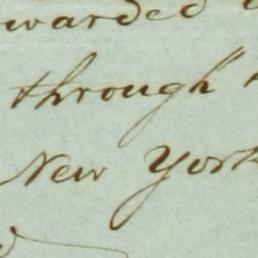 warded
through
New York